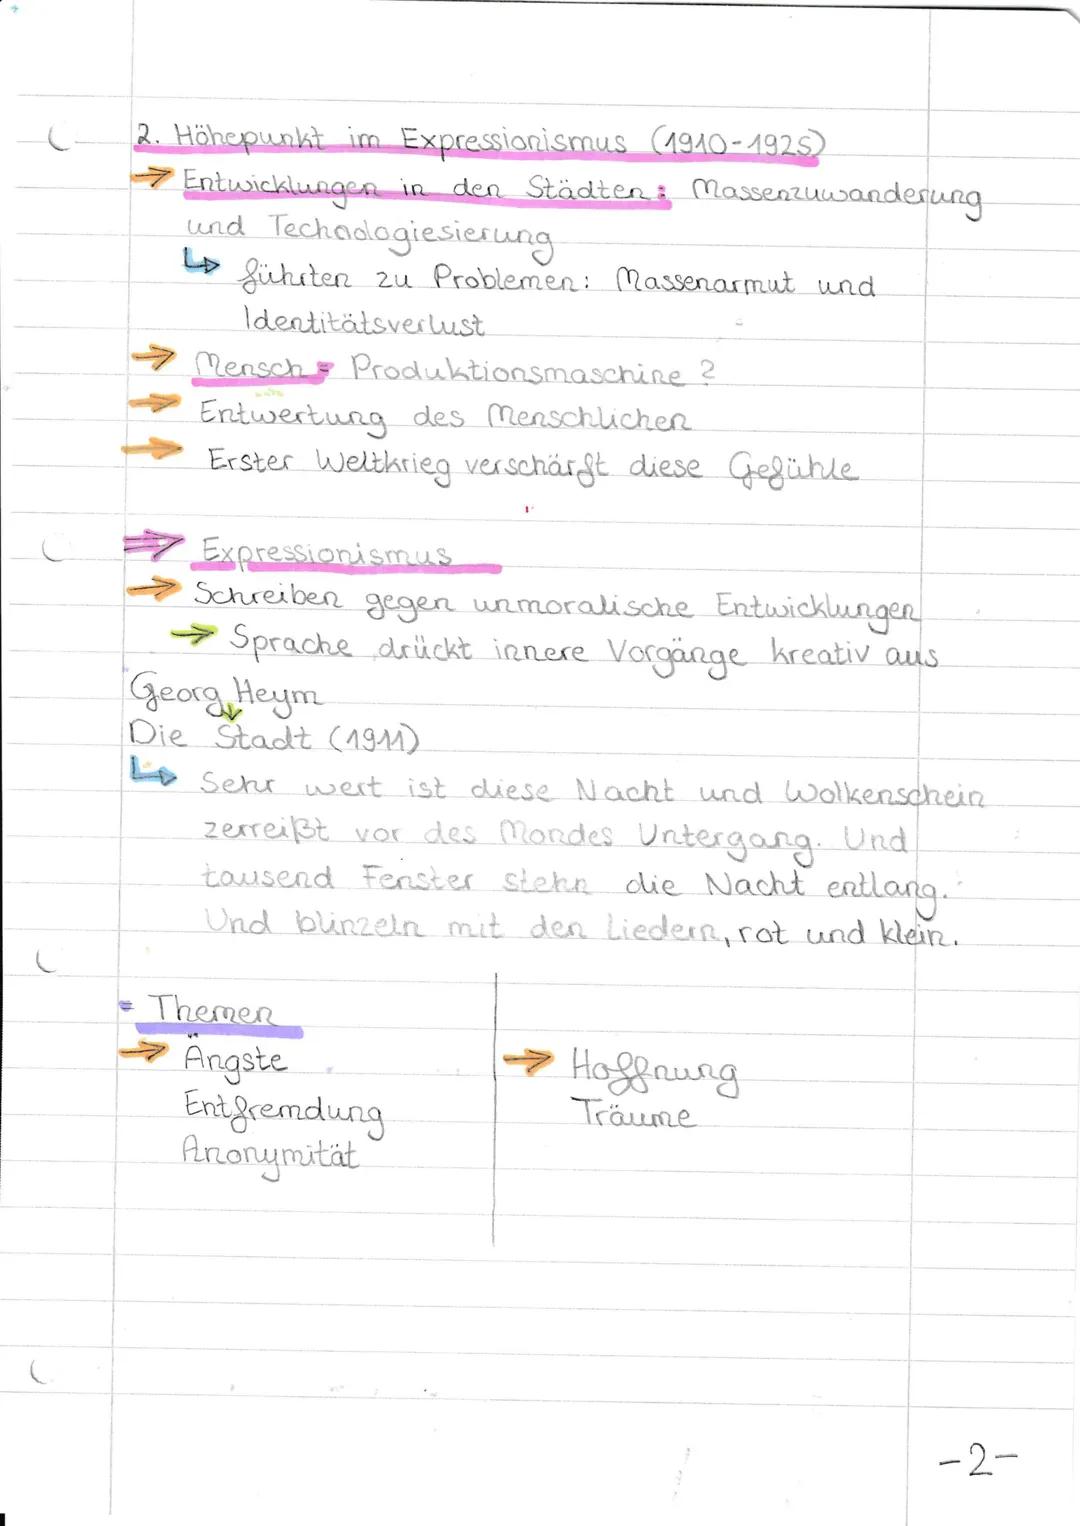 2. Höhepunkt im Expressionismus (1910-1925)
→ Entwicklungen in den Städten: Massenzuwanderung
und Technologiesierung
↳ führten zu Problemen: Massenarmut und
Identitätsverlust
→ Mensch = Produktionsmaschine?
→ Entwertung des Menschlichen
→ Erster Weltkrieg verschärft diese Gefühle
⇒ Expressionismus
→ Schreiben gegen unmoralische Entwicklungen
→ Sprache drückt innere Vorgänge kreativ aus
Georg Heym
↓
Die Stadt (1911)
↳ Sehr wert ist diese Nacht und Wolkenschein
zerreißt vor des Mondes Untergang. Und
tausend Fenster stehn die Nacht entlang.
Und blinzeln mit den Liedern, rot und klein.
= Themen
→ Ängste
Entfremdung
Anonymität
→ Hoffnung
Träume
-2-